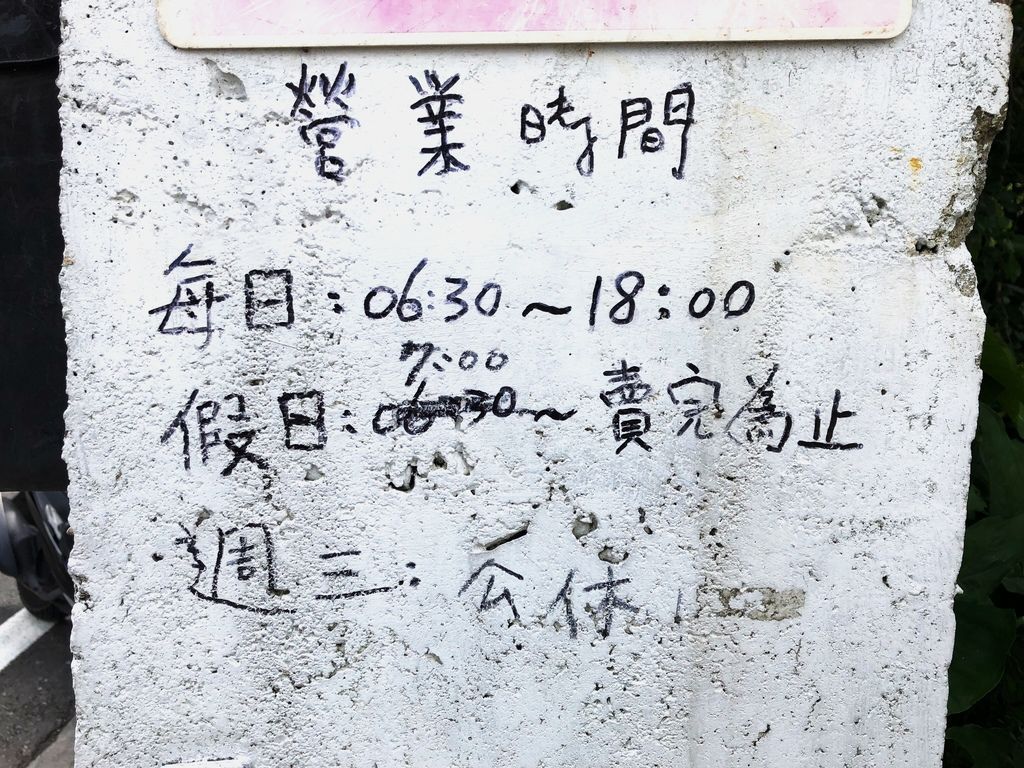 營業時間
每日:06:30~18:00
7:00
假日:06:30~賣完為止
週三:公休